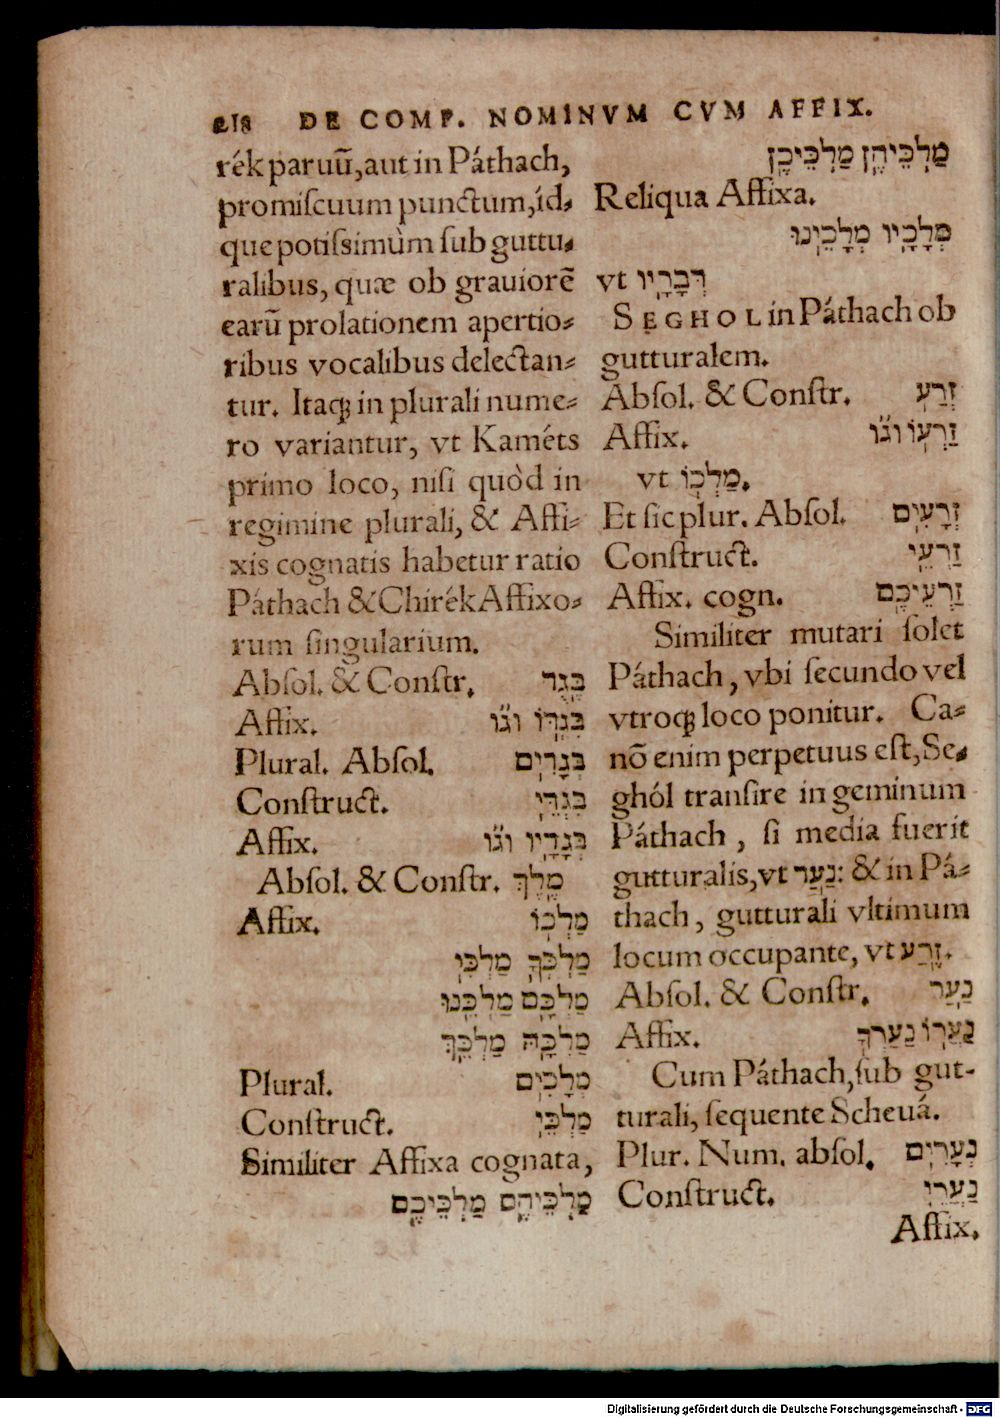 218 DE COMP. NOMINVM CVM AFFIX.
rék paruũ, aut in Páthach,
promiſcuum punctum, id-
que potiſsimùm ſub guttu-
ralibus, quæ ob grauiorẽ
earũ prolationem apertio-
ribus vocalibus delectan-
tur. Itaq; in plurali nume-
ro variantur, vt Kaméts
primo loco, niſi quòd in
regimine plurali, & Affi-
xis cognatis habetur ratio
Páthach & Chirék Affixo-
rum ſingularium.
Abſol. & Conſtr. בֶּגֶד
Affix. בִּגְדוֹ וגו֞
Plural. Abſol. בְּגָדִים
Conſtruct. בִּגְדֵי
Affix. בְּגָדָיו וגו֞
Abſol. & Conſtr. מֶלֶךְ
Affix. מַלְכּוֹ
מַלְכְּךָ מַלְכִּי
מַלְכָּם מַלְכֵּנוּ
מַלְכָּהּ מַלְכֵּךְ
Plural. מְלָכִים
Conſtruct. מַלְכֵי
Similiter Affixa cognata,
מַלְכֵיהֶם מַלְכֵיכֶם
מַלְכֵיהֶן מַלְכֵיכֶן
Reliqua Affixa.
מְלָכָיו מְלָכֵינוּ
vt דְּבָרָיו
SEGHOL in Páthach ob
gutturalem.
Abſol. & Conſtr. זְרַע
Affix. זַרְעוֹ וגו֞
vt מַלְכּוֹ.
Et ſic plur. Abſol. זְרָעִים
Conſtruct. זַרְעֵי
Affix. cogn. זַרְעֵיכֶם
Similiter mutari ſolet
Páthach, vbi ſecundo vel
vtroq; loco ponitur. Ca-
nõ enim perpetuus eſt, Se-
ghól tranſire in geminum
Páthach, ſi media fuerit
gutturalis, vt נַעַר: & in Pá-
thach, gutturali vltimum
locum occupante, vt זֶרַע.
Abſol. & Conſtr. נַעַר
Affix. נַעֲרוֹ נַעַרְךָ
Cum Páthach, ſub gut-
turali, ſequente Scheuá.
Plur. Num. abſol. נְעָרִים
Conſtruct. נַעֲרֵי
Affix.
Digitalisierung gefördert durch die Deutsche Forschungsgemeinschaft - DFG